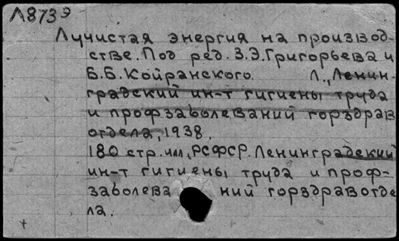 Л873э
Лучистая энергия на производ-
стве. Под ред. З.Э.Григорьева и
Б.Б.Койранского. Л., Ленин-
градский ин-т гигиены труда
и профзаболеваний горздрав
отдела, 1938.
180 стр. илл. РСФСР. Ленинградский
ин-т гигиены труда и проф-
заболева ний горздравотде
ла.